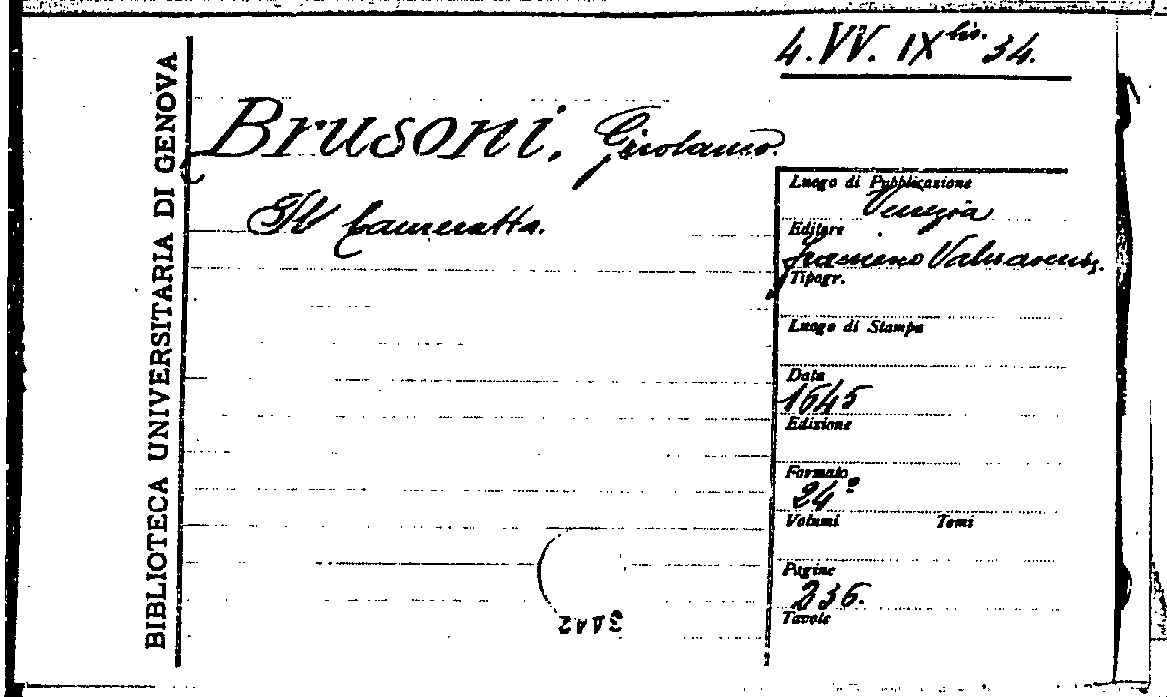 4. VV. IX bis. 34.
BIBLIOTECA UNIVERSITARIA DI GENOVA
Brusoni, Girolamo.
Il Camerotto.
Luogo di Pubblicazione
Venezia
Editore
Francesco Valvasense.
Tipogr.
Luogo di Stampa
Data
1645
Edizione
Formato
24°
Volumi Tomi
Pagine
236.
Tavole